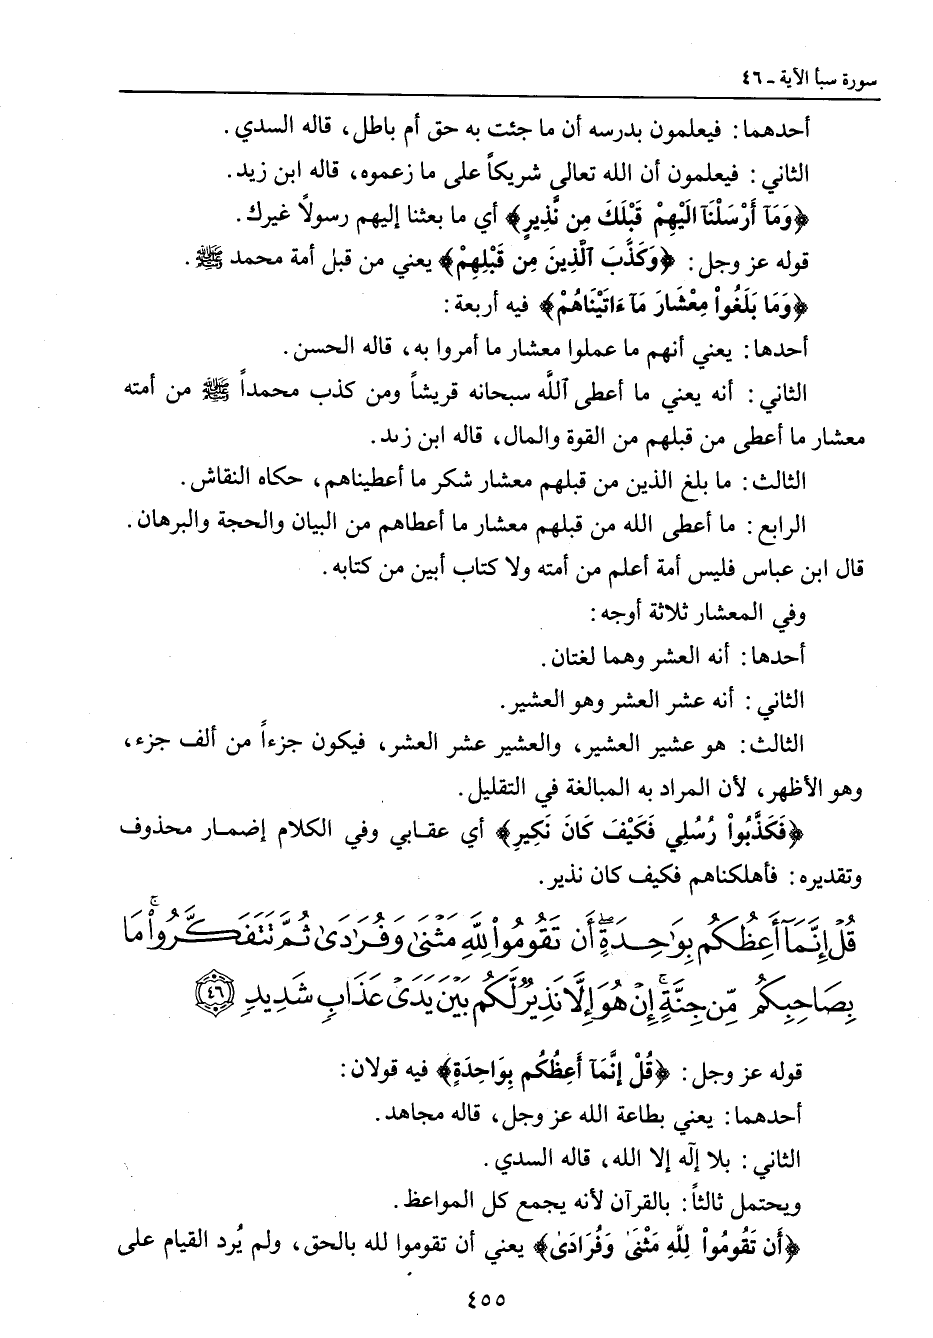 سورة سبأ الآية - ٤٦
أحدهما: فيعلمون بدرسه أن ما جئت به حق أم باطل، قاله السدي.
الثاني: فيعلمون أن الله تعالى شريكاً على ما زعموه، قاله ابن زيد.
﴿وَمَآ أَرْسَلْنَآ الَيْهِمْ قَبْلَكَ مِن نَّذِيرٍ﴾ أي ما بعثنا إليهم رسولاً غيرك.
قوله عز وجل: ﴿وَكَذَّبَ ٱلَّذِينَ مِن قَبْلِهِمْ﴾ يعني من قبل أمة محمد ﷺ.
﴿وَمَا بَلَغُواْ مِعْشَارَ مَآ ءَاتَيْنَاهُمْ﴾ فيه أربعة:
أحدها: يعني أنهم ما عملوا معشار ما أمروا به، قاله الحسن.
الثاني: أنه يعني ما أعطى ٱللَّه سبحانه قريشاً ومن كذب محمداً ﷺ من أمته
معشار ما أعطى من قبلهم من القوة والمال، قاله ابن زيد.
الثالث: ما بلغ الذين من قبلهم معشار شكر ما أعطيناهم، حكاه النقاش.
الرابع: ما أعطى الله من قبلهم معشار ما أعطاهم من البيان والحجة والبرهان.
قال ابن عباس فليس أمة أعلم من أمته ولا كتاب أبين من كتابه.
وفي المعشار ثلاثة أوجه:
أحدها: أنه العشر وهما لغتان.
الثاني: أنه عشر العشر وهو العشير.
الثالث: هو عشير العشير، والعشير عشر العشر، فيكون جزءاً من ألف جزء،
وهو الأظهر، لأن المراد به المبالغة في التقليل.
﴿فَكَذَّبُواْ رُسُلِي فَكَيْفَ كَانَ نَكِيرِ﴾ أي عقابي وفي الكلام إضمار محذوف
وتقديره: فأهلكناهم فكيف كان نذير.
قُلْ إِنَّمَآ أَعِظُكُم بِوَٰحِدَةٍ ۖ أَن تَقُومُواْ لِلَّهِ مَثْنَىٰ وَفُرَٰدَىٰ ثُمَّ تَتَفَكَّرُواْ ۚ مَا
بِصَاحِبِكُم مِّن جِنَّةٍ ۚ إِنْ هُوَ إِلَّا نَذِيرٌ لَّكُم بَيْنَ يَدَىْ عَذَابٍ شَدِيدٍ ٤٦
قوله عز وجل: ﴿قُلْ إِنَّمَآ أَعِظُكُم بِوَاحِدَةٍ﴾ فيه قولان:
أحدهما: يعني بطاعة الله عز وجل، قاله مجاهد.
الثاني: بلا إلٰه إلا الله، قاله السدي.
ويحتمل ثالثاً: بالقرآن لأنه يجمع كل المواعظ.
﴿أَن تَقُومُواْ لِلَّهِ مَثْنَىٰ وَفُرَادَىٰ﴾ يعني أن تقوموا لله بالحق، ولم يُرد القيام على
٤٥٥